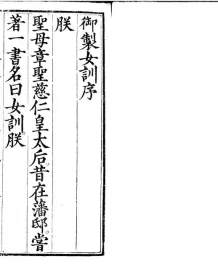 御製女訓序
朕
聖母章聖慈仁皇太后昔在藩邸嘗
著一書名曰女訓朕